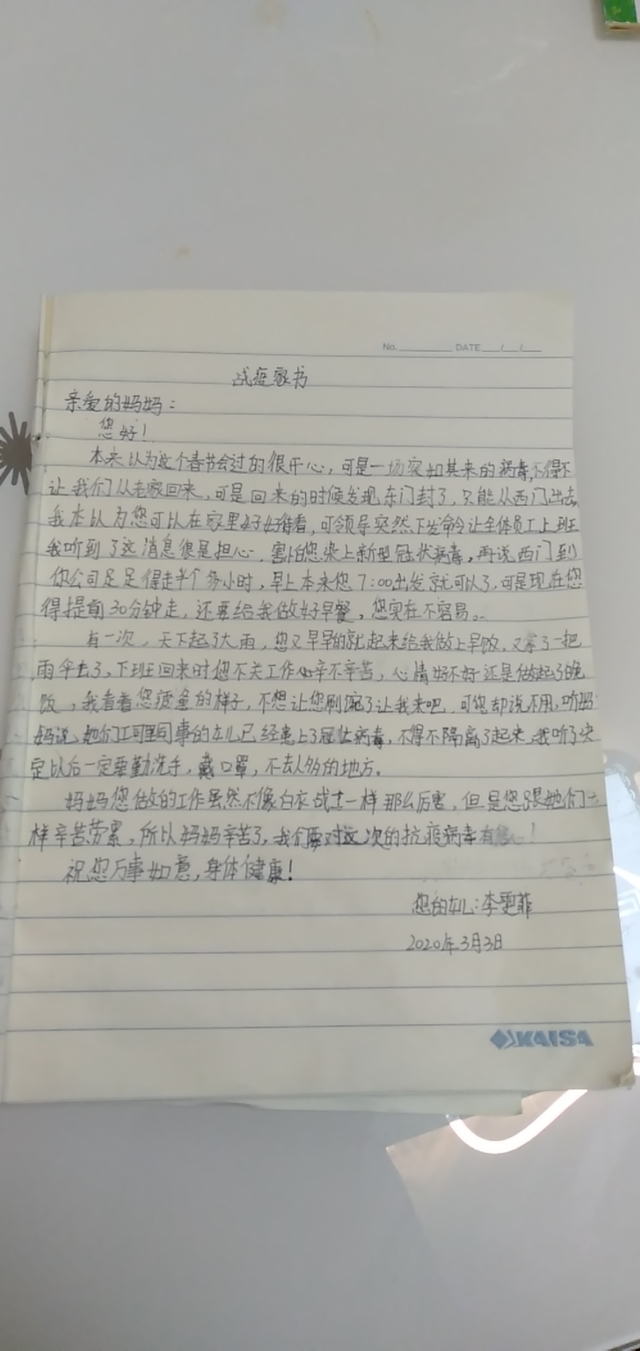 No. DATE / /
战疫家书
亲爱的妈妈：
您好！
本来以为这个春节会过的很开心，可是一场突如其来的病毒，不得不
让我们从老家回来，可是回来的时候发现东门封了，只能从西门出去
我本以为您可以在家里好好待着，可领导突然下发命令让全体员工上班
我听到了这消息很是担心，害怕您染上新型冠状病毒，再说西门到
你公司足足得走半个多小时，早上本来您7:00出发就可以了，可是现在您
得提前30分钟走，还要给我做好早餐，您实在不容易。
有一次，天下起了大雨，您又早早的就起来给我做上早饭，又拿了一把
雨伞去了，下班回来时您不关工作心辛不辛苦，心情好不好还是做起了晚
饭，我看着您疲惫的样子，不想让您刷碗了让我来吧，可您却说不用，听
妈说，她们工司里同事的女儿已经患上了冠状病毒，不得不隔离了起来，我听了决
定以后一定要勤洗手，戴口罩，不去人多的地方。
妈妈您做的工作虽然不像白衣战士一样那么厉害，但是您跟她们一
样辛苦劳累，所以妈妈辛苦了，我们要对这次的抗疫病毒有！
祝您万事如意，身体健康！
您的女儿：李雯菲
2020年3月3日
KAISA